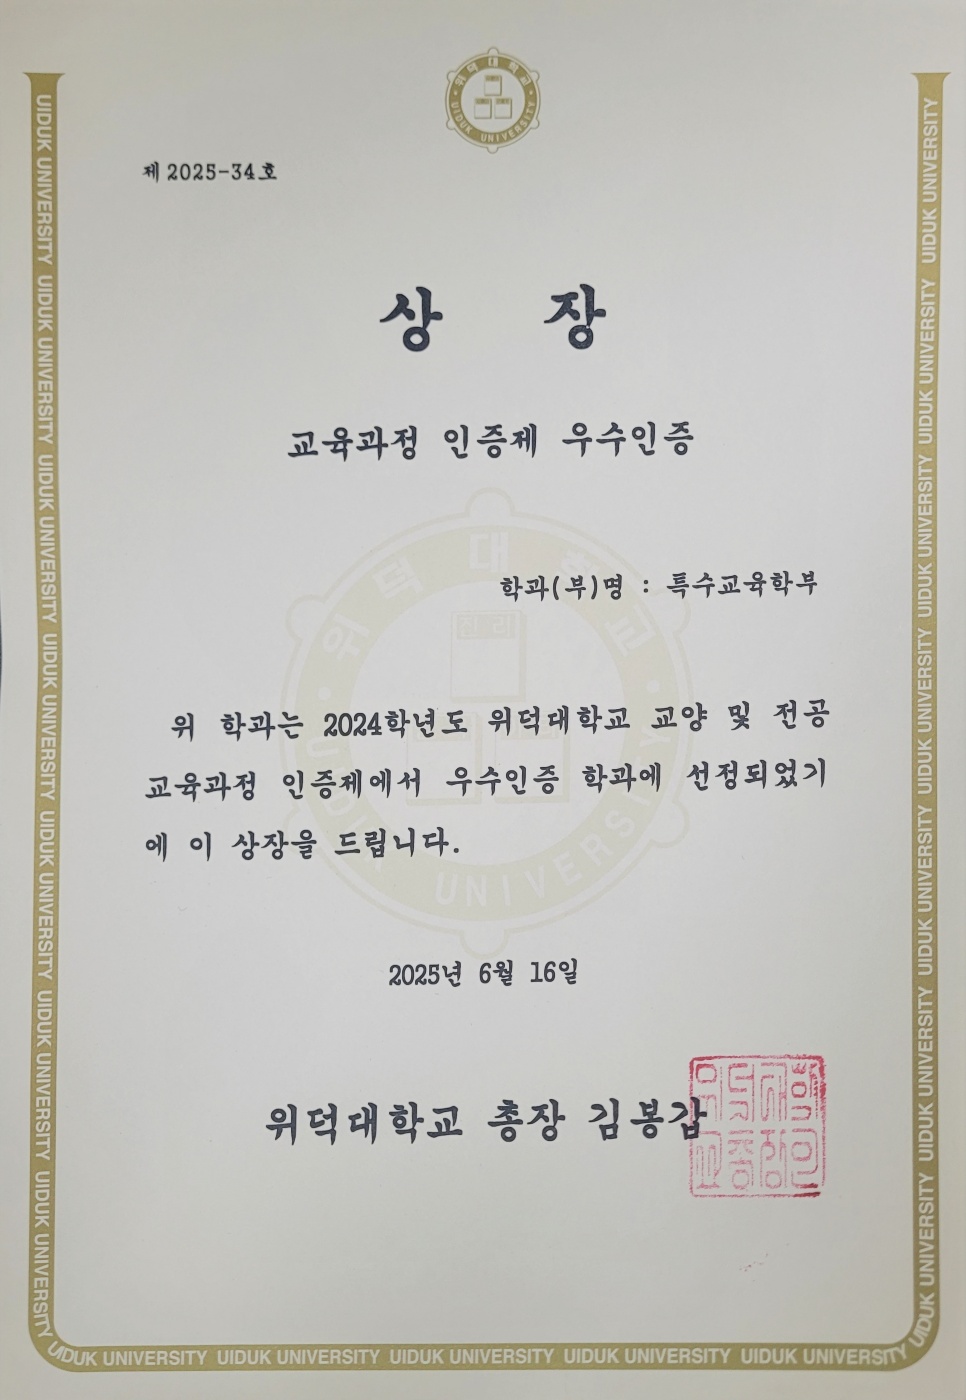 위덕대학교
UIDUK UNIVERSITY
제 2025-34호
상 장
교육과정 인증제 우수인증
학과(부)명 : 특수교육학부
위 학과는 2024학년도 위덕대학교 교양 및 전공
교육과정 인증제에서 우수인증 학과에 선정되었기
에 이 상장을 드립니다.
2025년 6월 16일
위덕대학교 총장 김봉갑
위덕대학
교총장인
위덕대학교
진리
UIDUK UNIVERSITY
UIDUK UNIVERSITY UIDUK UNIVERSITY UIDUK UNIVERSITY UIDUK UNIVERSITY UIDUK UNIVERSITY UIDUK UNIVERSITY UIDUK UNIVERSITY
UIDUK UNIVERSITY UIDUK UNIVERSITY UIDUK UNIVERSITY UIDUK UNIVERSITY UIDUK UNIVERSITY
UIDUK UNIVERSITY UIDUK UNIVERSITY UIDUK UNIVERSITY UIDUK UNIVERSITY UIDUK UNIVERSITY UIDUK UNIVERSITY UIDUK UNIVERSITY